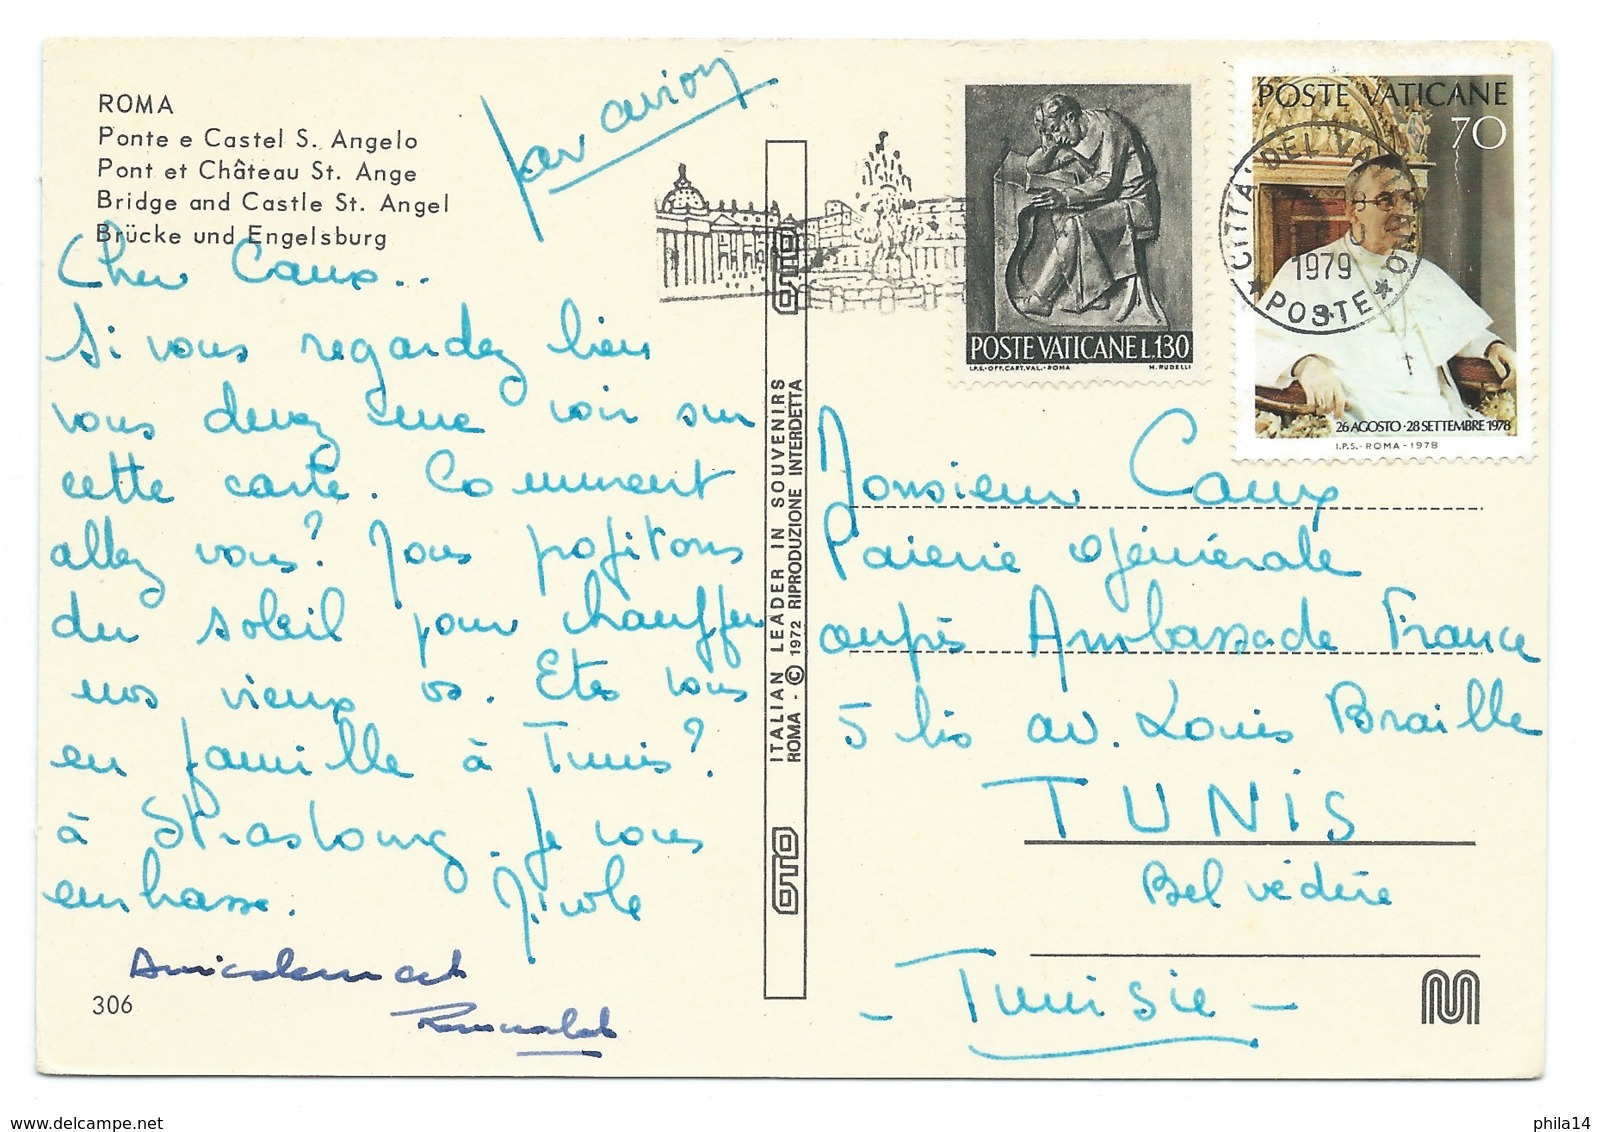 ROMA
Ponte e Castel S. Angelo
Pont et Château St. Ange
Bridge and Castle St. Angel
Brücke und Engelsburg
par avion
Cher Caux..
Si vous regardez bien
vous devez me voir sur
cette carte. Comment
allez vous? Nous profitons
du soleil pour chauffer
nos vieux os. Etes vous
en famille à Tunis?
à Strasbourg. Je vous
embrasse. Nicole
Amicalement
306
ITALIAN LEADER IN SOUVENIRS
ROMA - © 1972 RIPRODUZIONE INTERDETTA
OTO
OTO
POSTE VATICANE L.130
I.P.S.-OFF.CART.VAL.-ROMA M. RUDELLI
POSTE VATICANE
70
26 AGOSTO·28 SETTEMBRE 1978
I.P.S.-ROMA-1978
CITTA·DEL VATICANO
1979
POSTE
Monsieur Caux
Paierie Générale
auprès Ambassade France
5 bis av. Louis Braille
TUNIS
Belvédère
- Tunisie -
phila14
www.delcampe.net